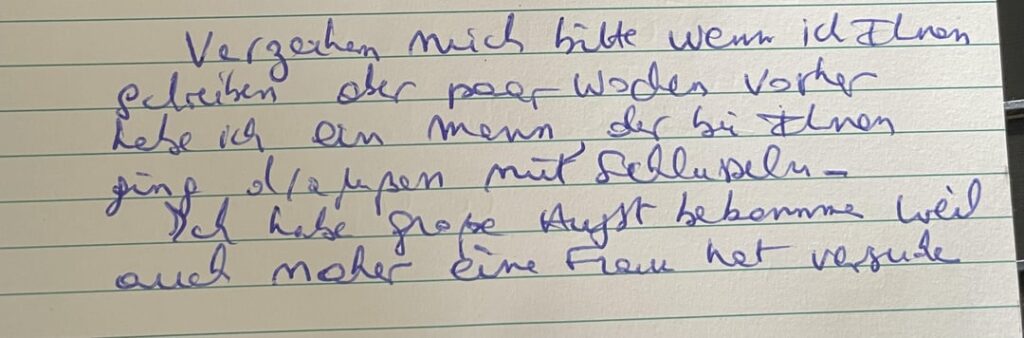 Verzeihen mich bitte wenn ich Ihnen
schreiben aber paar Wochen vorher
habe ich ein Mann der bei Ihnen
ging draußen mit Schlüsseln –
Ich habe große Angst bekomme weil
auch eine Frau hat versuche